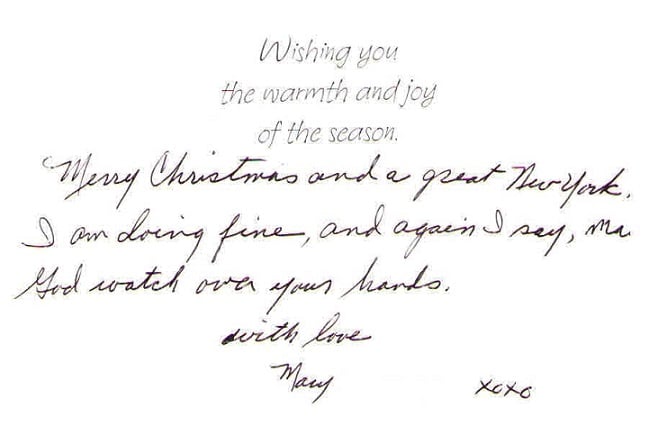 Wishing you
the warmth and joy
of the season.
Merry Christmas and a great New York.
I am doing fine, and again I say, Ma
God watch over your hands.
with love
Mary
xoxo